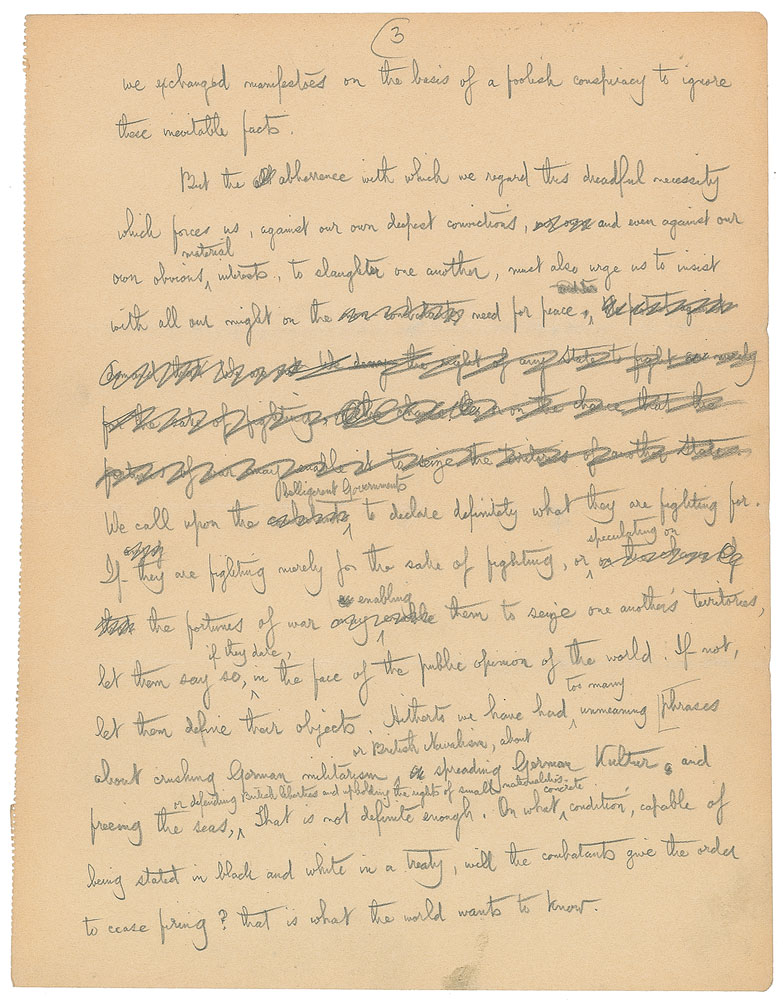 3
we exchanged manifestoes on the basis of a foolish conspiracy to ignore
these inevitable facts.
But the abhorrence with which we regard this dreadful necessity
which forces us, against our own deepest convictions, and even against our
material
own obvious interests, to slaughter one another, must also urge us to insist
with all our might on the need for peace.
We demand the right of any State to fight merely
for the sake of fighting, on the chance that the
fortune of war may enable it to seize the territories of another State.
belligerent Governments
We call upon the to declare definitely what they are fighting for.
speculating on
If they are fighting merely for the sake of fighting, or
enabling
the fortunes of war them to seize one another's territories,
if they dare,
let them say so, in the face of the public opinion of the world. If not,
too many
let them define their objects. Hitherto we have had unmeaning phrases
or British Navalism, about
about crushing German militarism spreading German Kultur and
or defending British liberties and upholding the rights of small nationalities concrete
freeing the seas, That is not definite enough. On what condition, capable of
being stated in black and white in a treaty, will the combatants give the order
to cease firing? that is what the world wants to know.